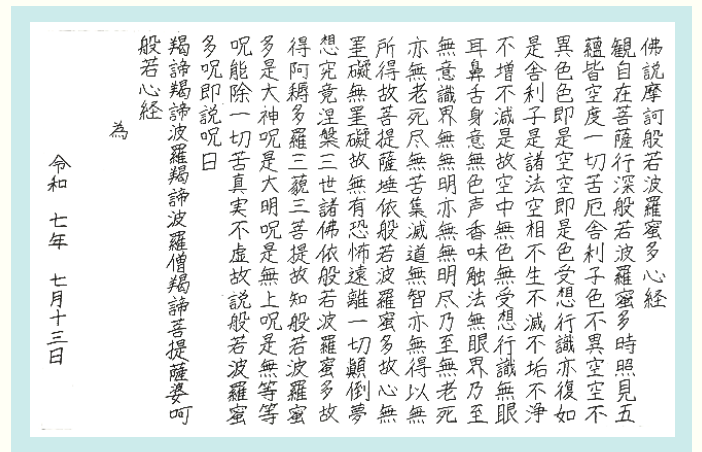 佛説摩訶般若波羅蜜多心経
観自在菩薩行深般若波羅蜜多時照見五
蘊皆空度一切苦厄舎利子色不異空空不
異色色即是空空即是色受想行識亦復如
是舎利子是諸法空相不生不滅不垢不浄
不増不減是故空中無色無受想行識無眼
耳鼻舌身意無色声香味触法無眼界乃至
無意識界無無明亦無無明尽乃至無老死
亦無老死尽無苦集滅道無智亦無得以無
所得故菩提薩埵依般若波羅蜜多故心無
罣礙無罣礙故無有恐怖遠離一切顛倒夢
想究竟涅槃三世諸佛依般若波羅蜜多故
得阿耨多羅三藐三菩提故知般若波羅蜜
多是大神呪是大明呪是無上呪是無等等
呪能除一切苦真実不虚故説般若波羅蜜
多呪即説呪曰
羯諦羯諦波羅羯諦波羅僧羯諦菩提薩婆呵
般若心経
為
令和 七年 七月十三日